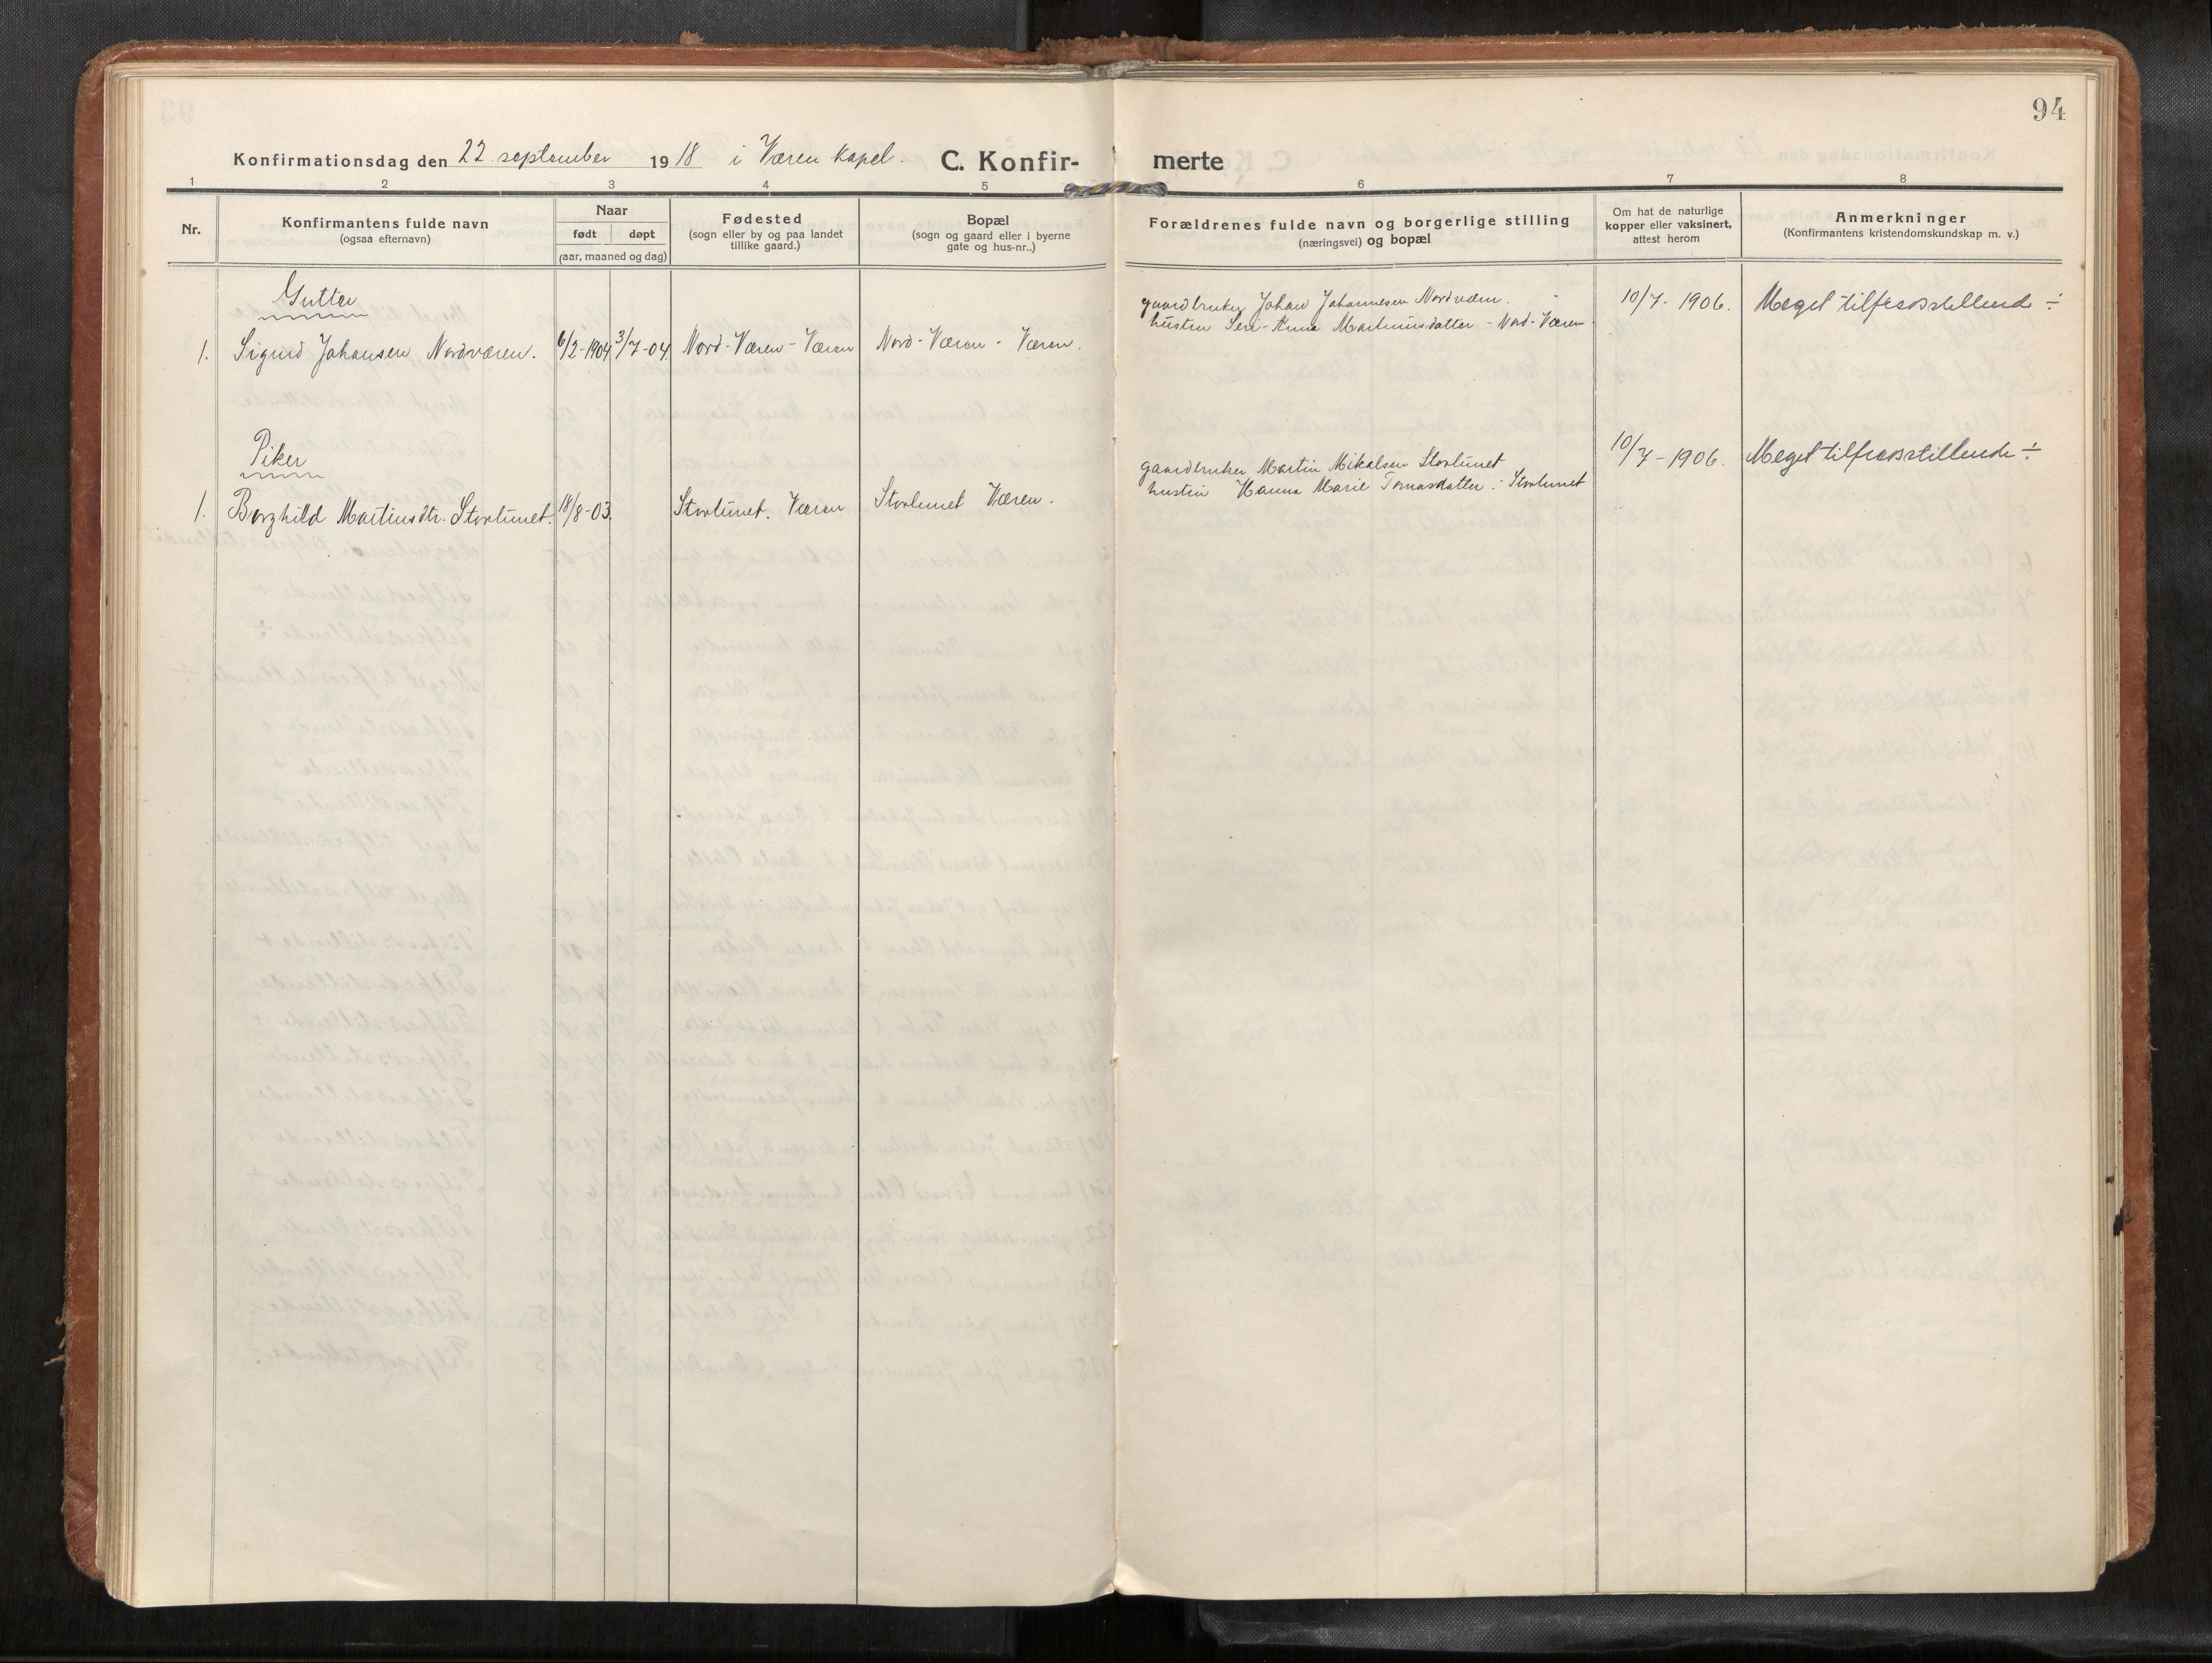 94
Konfirmationsdag den 22 september 1918 i Væren Kapel. C. Konfir- merte
1 2 3 4 5 6 7 8
Nr.
Konfirmantens fulde navn
(ogsaa efternavn)
Naar
født døpt
(aar, maaned og dag)
Fødested
(sogn eller by og paa landet
tillike gaard.)
Bopæl
(sogn og gaard eller i byerne
gate og hus-nr..)
Forældrenes fulde navn og borgerlige stilling
(næringsvei) og bopæl
Om hat de naturlige
kopper eller vaksinert,
attest herom
Anmerkninger
(Konfirmantens kristendomskundskap m. v.)
Gutter
1. Sigurd Johansen Nordværen. 6/2-1904 3/7-04. Nord-Væren-Væren Nord-Væren - Væren.
gaardbruker Johan Johannesen Nordværn. 10/7. 1906. Meget tilfredsstillende ÷
hustru Anna Martinusdatter - Nord-Væren
Piker
1. Borghild Martinsdtr. Storlunet. 18/8-03. Storlunet. Væren Storlunet Væren.
gaardbruker Martin Mikalsen Storlunet 10/7-1906. Meget tilfredsstillende ÷
hustru Hanna Marie Tomasdatter - Storlunet